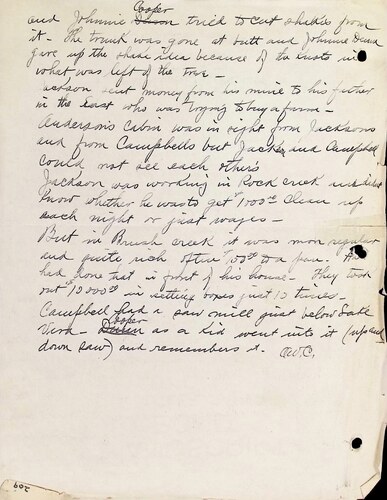 Cooper
and Johnnie Dixon tried to cut shakes from
it - The trunk was gone at butt and Johnnie Dixon
gave up the shake idea because of the twists in
what was left of the tree -
Jackson sent money from his mine to his father
in the east who was trying to buy a farm -
Anderson's Cabin was in sight from Jacksons
and from Campbells but Jacks and Campbell
could not see each others
Jackson was working in Rock creek
know whether he wasts get 100 clean up
each night or just wages -
But in Brush creek it was more regular
and quite rich often to a pan.
had done that in front of his house - They took
out 10 000 in setting boxes just 10 times -
Campbell had a saw mill just below Salt
Cooper
as a kid went into it (up and
down saw) and remembers it. A.W.C.
209